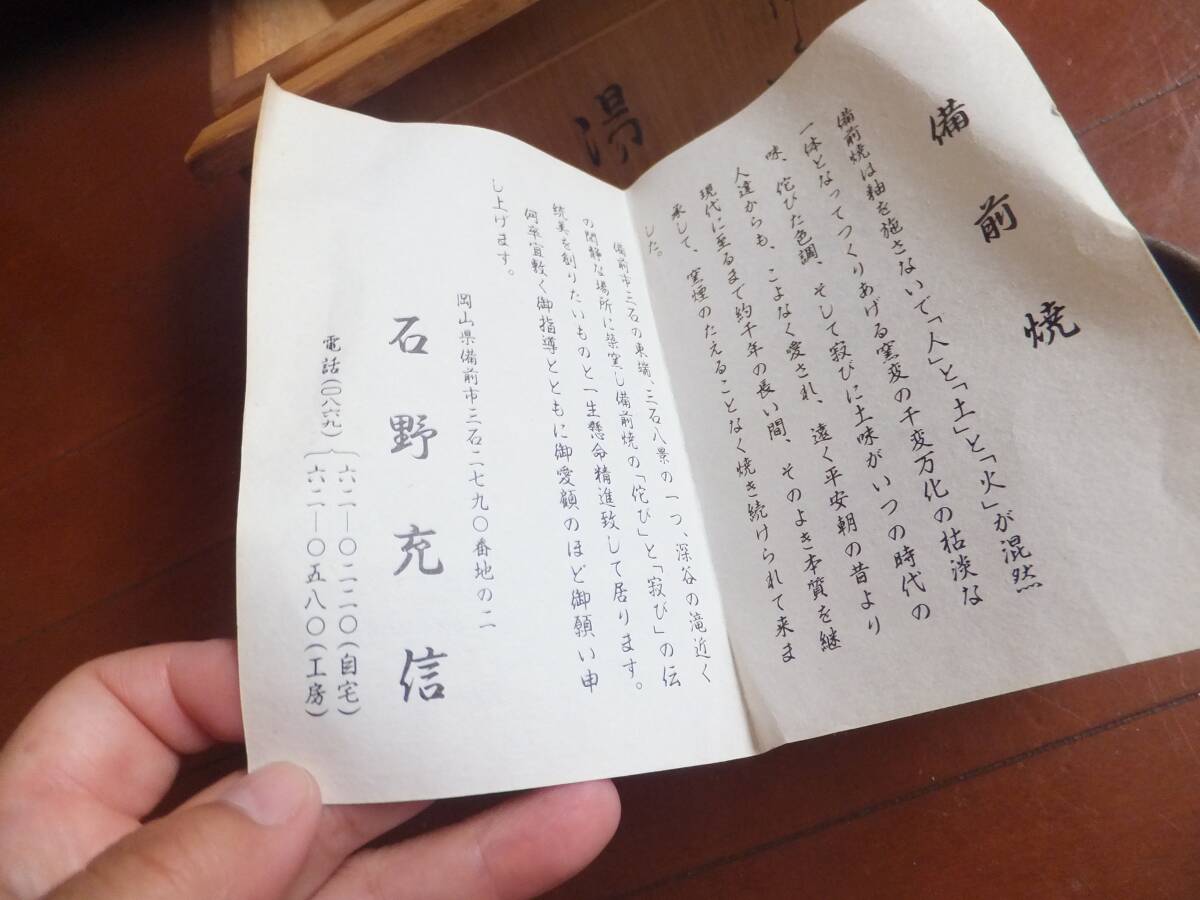 備前焼
備前焼は釉を施さないで「人」と「土」と「火」が混然
一体となってつくりあげる窯変の千変万化の枯淡な
味、侘びた色調、そして寂びに土味がいつの時代の
人達からも、こよなく愛され、遠く平安朝の昔より
現代に至るまで約千年の長い間、そのよき本質を継
承して、窯煙のたえることなく焼き続けられて来ま
した。
備前市三石の東端、三石八景の一つ、深谷の滝近く
の閑静な場所に築窯し備前焼の「侘び」と「寂び」の伝
統美を創りたいものと一生懸命精進致して居ります。
何卒宜敷く御指導とともに御愛顧のほど御願い申
し上げます。
岡山県備前市三石二七九〇番地の二
石野充信
電話(〇八六九)
六二―〇二二〇(自宅)
六二―〇五八〇(工房)
湯